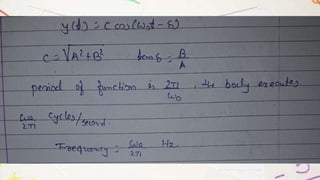 y(t) = C cos(ω₀t - δ)
C = √A²+B² tan δ = B/A
period of function is 2π/ω₀, the body executes
ω₀/2π cycles/second.
Frequency = ω₀/2π Hz.